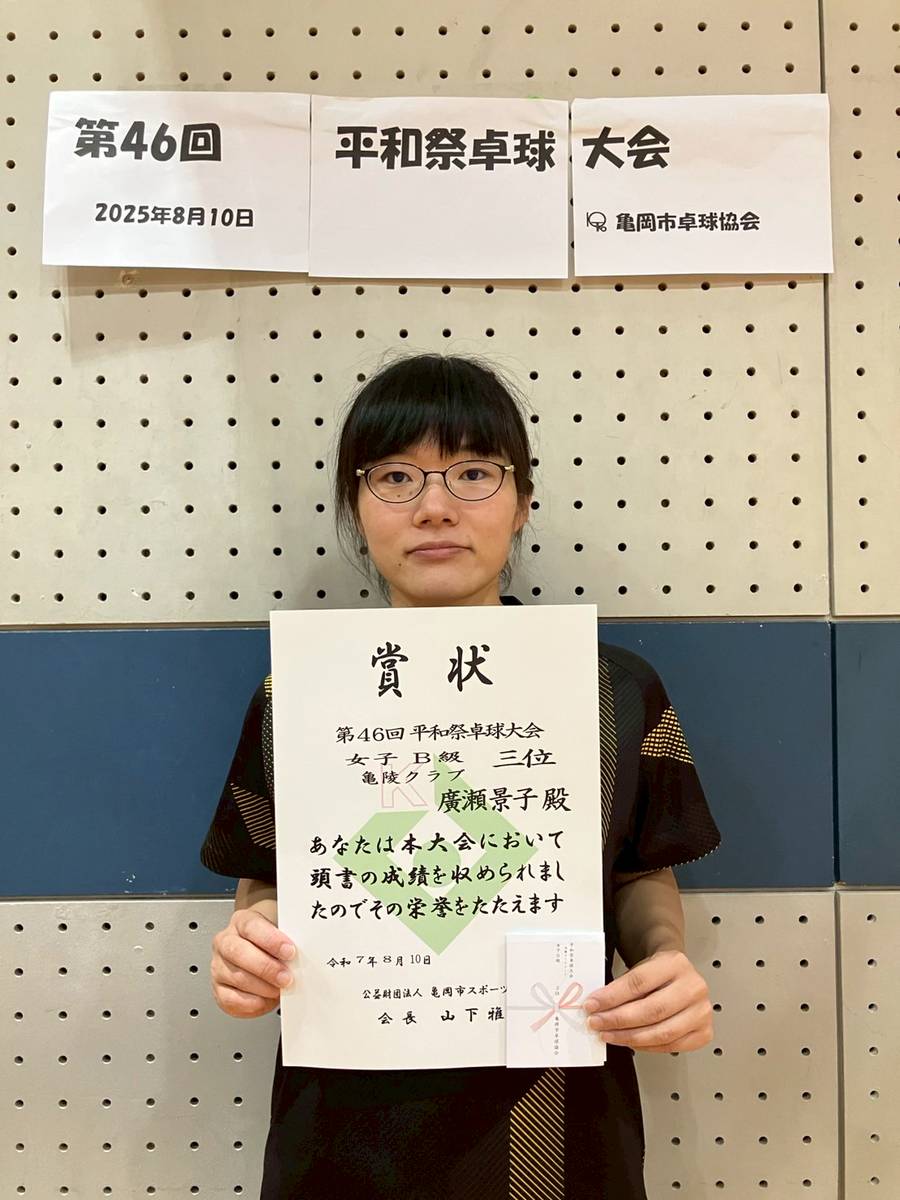 第46回 平和祭卓球大会
2025年8月10日
亀岡市卓球協会
賞状
第46回平和祭卓球大会
女子 B級 三位
亀陵クラブ
廣瀬景子殿
あなたは本大会において
頭書の成績を収められまし
たのでその栄誉をたたえます
令和7年8月10日
公益財団法人 亀岡市スポーツ
会長 山下雅
平和祭卓球大会
女子B級
三位
亀岡市卓球協会